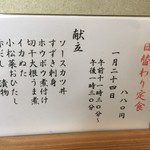 日替わり定食
八八〇円
一月二十四日
午前十一時三〇分〜
午後一時三〇分
献立
ソースカツ丼
すずき刺身
ホウボウ煮付け
切干大根うま煮
イカぬた
小松菜おひたし
赤だし
漬物